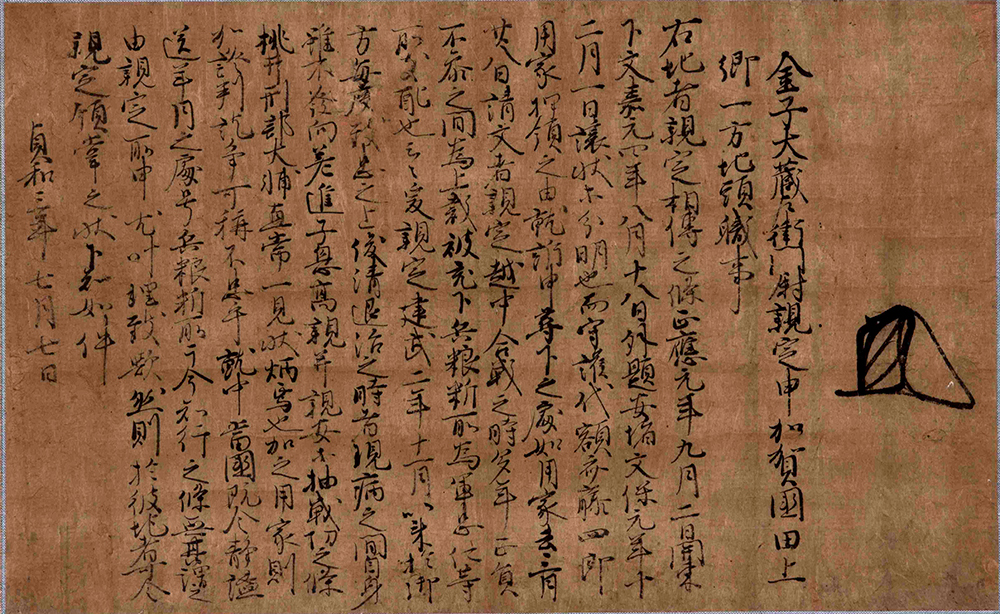 金子大蔵左衛門尉親定申加賀國田上
郷一方地頭職事
右地者親定相傳之條正應元年九月二日關東
下文嘉元四年八月十八日外題安堵文保元年十
二月一日讓状等分明也而守護代額部藤四郎
用家押領之由就訴申尋下之處如用家去六月
廿八日請文者親定越中合戰之時先年 正員
不参之間為上裁被充下兵粮料所為軍忠仁等
所支配也云々爰親定建武二年十一月以來於御
方毎度致忠之上後清退治之時者現病之間自身
雖不發向若進子息高親并親女等抽戰功之條
桃井刑部大輔直常一見状炳焉也加之用家則
加judge判訖争可稱不忠乎就中當國既令静謐
送年月之處号兵粮料所于今知行之條無其謂
由親定所申尤叶理致歟然則於彼地者令
親定領掌之状下知如件
貞和三年七月七日